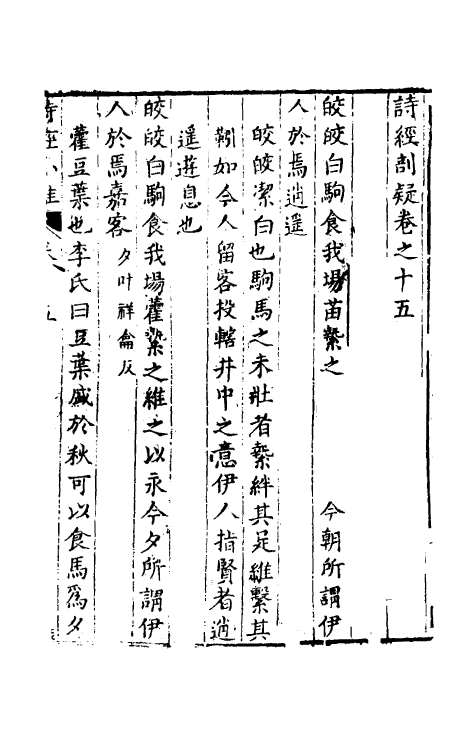 詩經剖疑卷之十五
皎皎白駒食我場苗縶之　今朝所謂伊
人於焉逍遥
皎皎潔白也駒馬之未壯者縶絆其足維繫其
靷如今人留客投轄井中之意伊人指賢者逍
遥遊息也
皎皎白駒食我場藿縶之維之以永今夕所謂伊
人於焉嘉客夕叶祥龠反
藿豆葉也李氏曰豆葉盛於秋可以食馬為夕